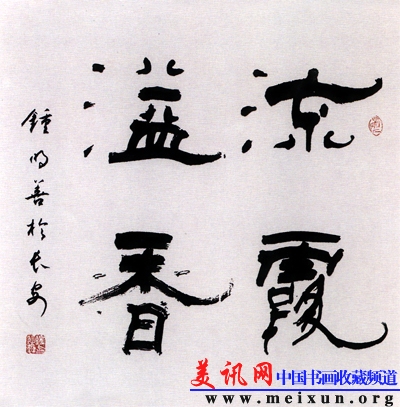 流霞
溢香
鍾明善於長安
美讯网中国书画收藏频道
www.meixun.org